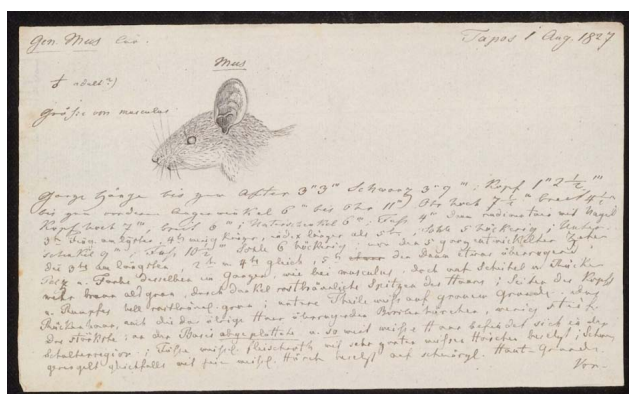 Gen. Mus Lin.
Tapos 1 Aug. 1827
Mus
adult?)
Größe von musculus.
Ganze Länge bis zum After 3" 3''' Schwanz 3" 7''' Kopf 1" 2 1/2'''
bis zum vordern Augenwinkel 6''' bis Ohr 11''' Ohr hoch 7 breit
Kopf hoch 7''' breit 6''' Unterschenkel Fuß Daum rudimentär mit Nagel
3te Fing. am längsten, 4te index länger als 5te, Sohle 5 höckrig; Unter-
schenkel 9''' Fuß 10 1/2''' Sohle 6 höckrig, von den 5 Zehen
die 3te am längsten, 2te u. 4te gleich, 5te den Daum etwas überragend
Farbe desselben im Ganzen wie bei musculus, doch auf Scheitel u. Rücken
mehr braun als grau, durch dunkel rostbräunliche Spitzen des Haars; Seiten des Kopfs
u. Rumpfes hell rostbräunl. grau; untere Theile weiß auf grauem Grunde; oben
Rückenhaare, auch die das übrige Haar überragenden Borstenhärchen, wenig steif
das stärkste, an der Basis abgeplattete u. so weit weiße Haar befindet sich in der
Schulterregion; Füße weißl. fleischroth mit sehr zarten weißen Härchen besetzt; Schwanz
geringelt gleichfalls mit fein weißl. Härch besetzt auf schwärzl. Haut-Grunde.
Vor-